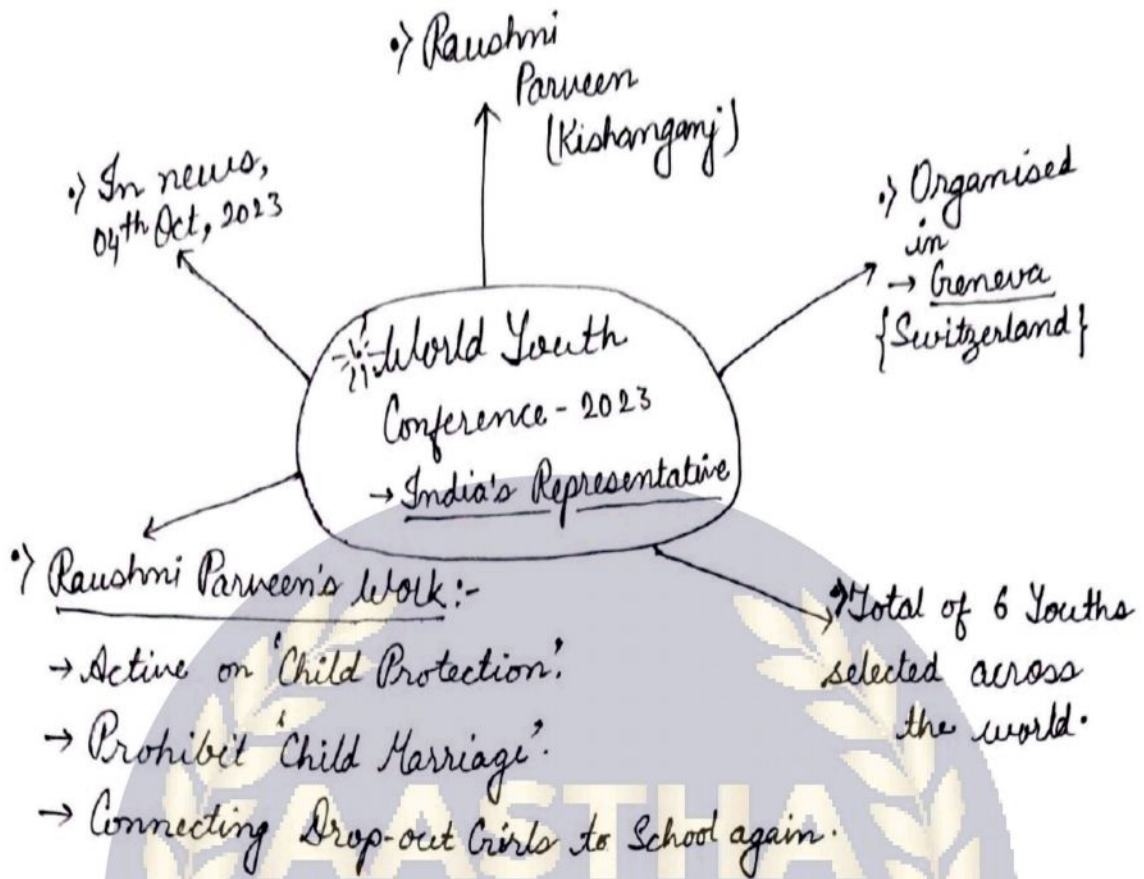 •) Raushni
Parveen
(Kishanganj)
•) In news,
04th Oct, 2023
•) Organised
in
→ Geneva
{Switzerland}
World Youth
Conference - 2023
→ India's Representative
•) Raushni Parveen's Work:-
→ Active on 'Child Protection'.
→ Prohibit 'Child Marriage'.
→ Connecting Drop-out Girls to School again.
•) Total of 6 Youths
selected across
the world.
AASTHA